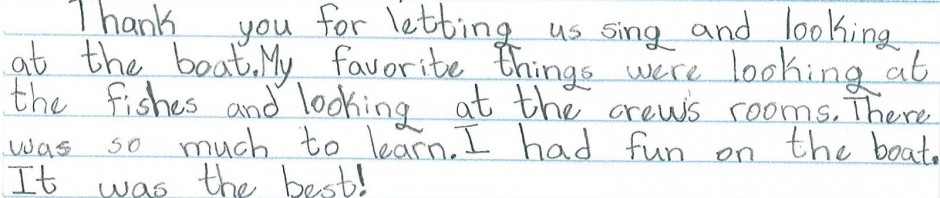 Thank you for letting us sing and looking
at the boat. My favorite things were looking at
the fishes and looking at the crew's rooms. There
was so much to learn. I had fun on the boat.
It was the best!